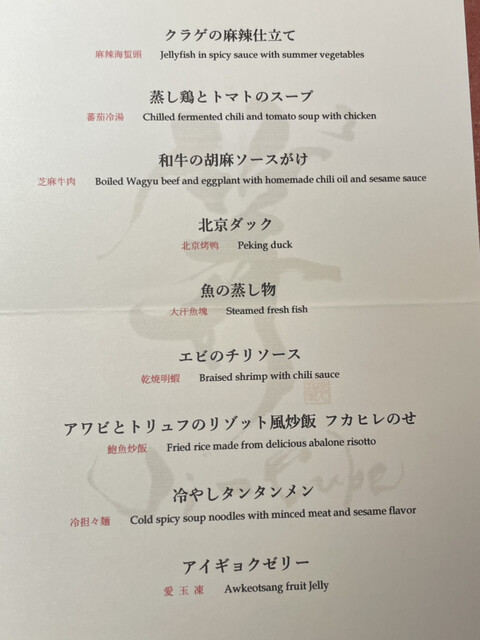 クラゲの麻辣仕立て
麻辣海蜇頭 Jellyfish in spicy sauce with summer vegetables
蒸し鶏とトマトのスープ
蕃茄冷湯 Chilled fermented chili and tomato soup with chicken
和牛の胡麻ソースがけ
芝麻牛肉 Boiled Wagyu beef and eggplant with homemade chili oil and sesame sauce
北京ダック
北京烤鸭 Peking duck
魚の蒸し物
大汗魚塊 Steamed fresh fish
エビのチリソース
乾焼明蝦 Braised shrimp with chili sauce
アワビとトリュフのリゾット風炒飯 フカヒレのせ
鮑魚炒飯 Fried rice made from delicious abalone risotto
冷やしタンタンメン
冷担々麺 Cold spicy soup noodles with minced meat and sesame flavor
アイギョクゼリー
愛玉凍 Awkeotsang fruit Jelly